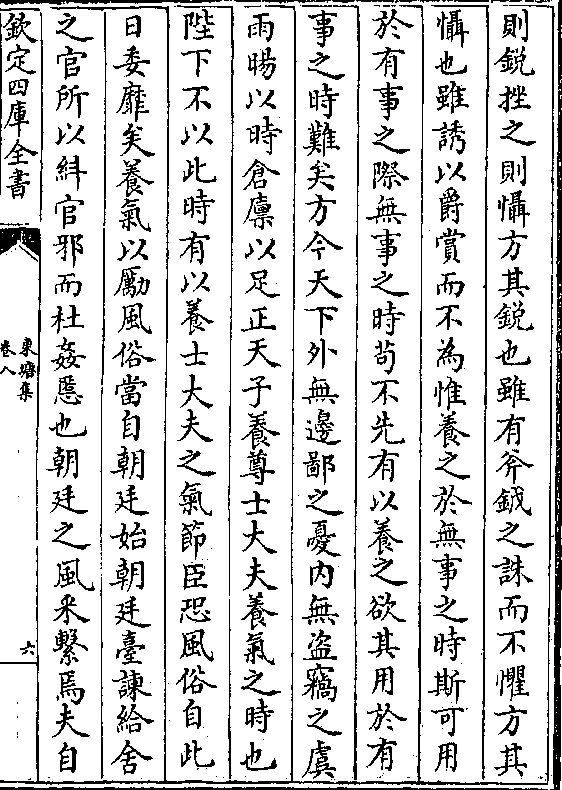 則銳挫之則懾方其銳也雖有斧鉞之誅而不懼方其
懾也雖誘以爵賞而不為惟養之於無事之時斯可用
於有事之際無事之時苟不先有以養之欲其用於有
事之時難矣方今天下外無邊鄙之憂内無盜竊之虞
雨暘以時倉廩以足正天子養尊士大夫養氣之時也
陛下不以此時有以養士大夫之氣節臣恐風俗自此
日委靡矣養氣以勵風俗當自朝廷始朝廷臺諫給舍
之官所以糾官邪而杜姦慝也朝廷之風采繫焉夫自
欽定四庫全書
東塘集
卷八
六